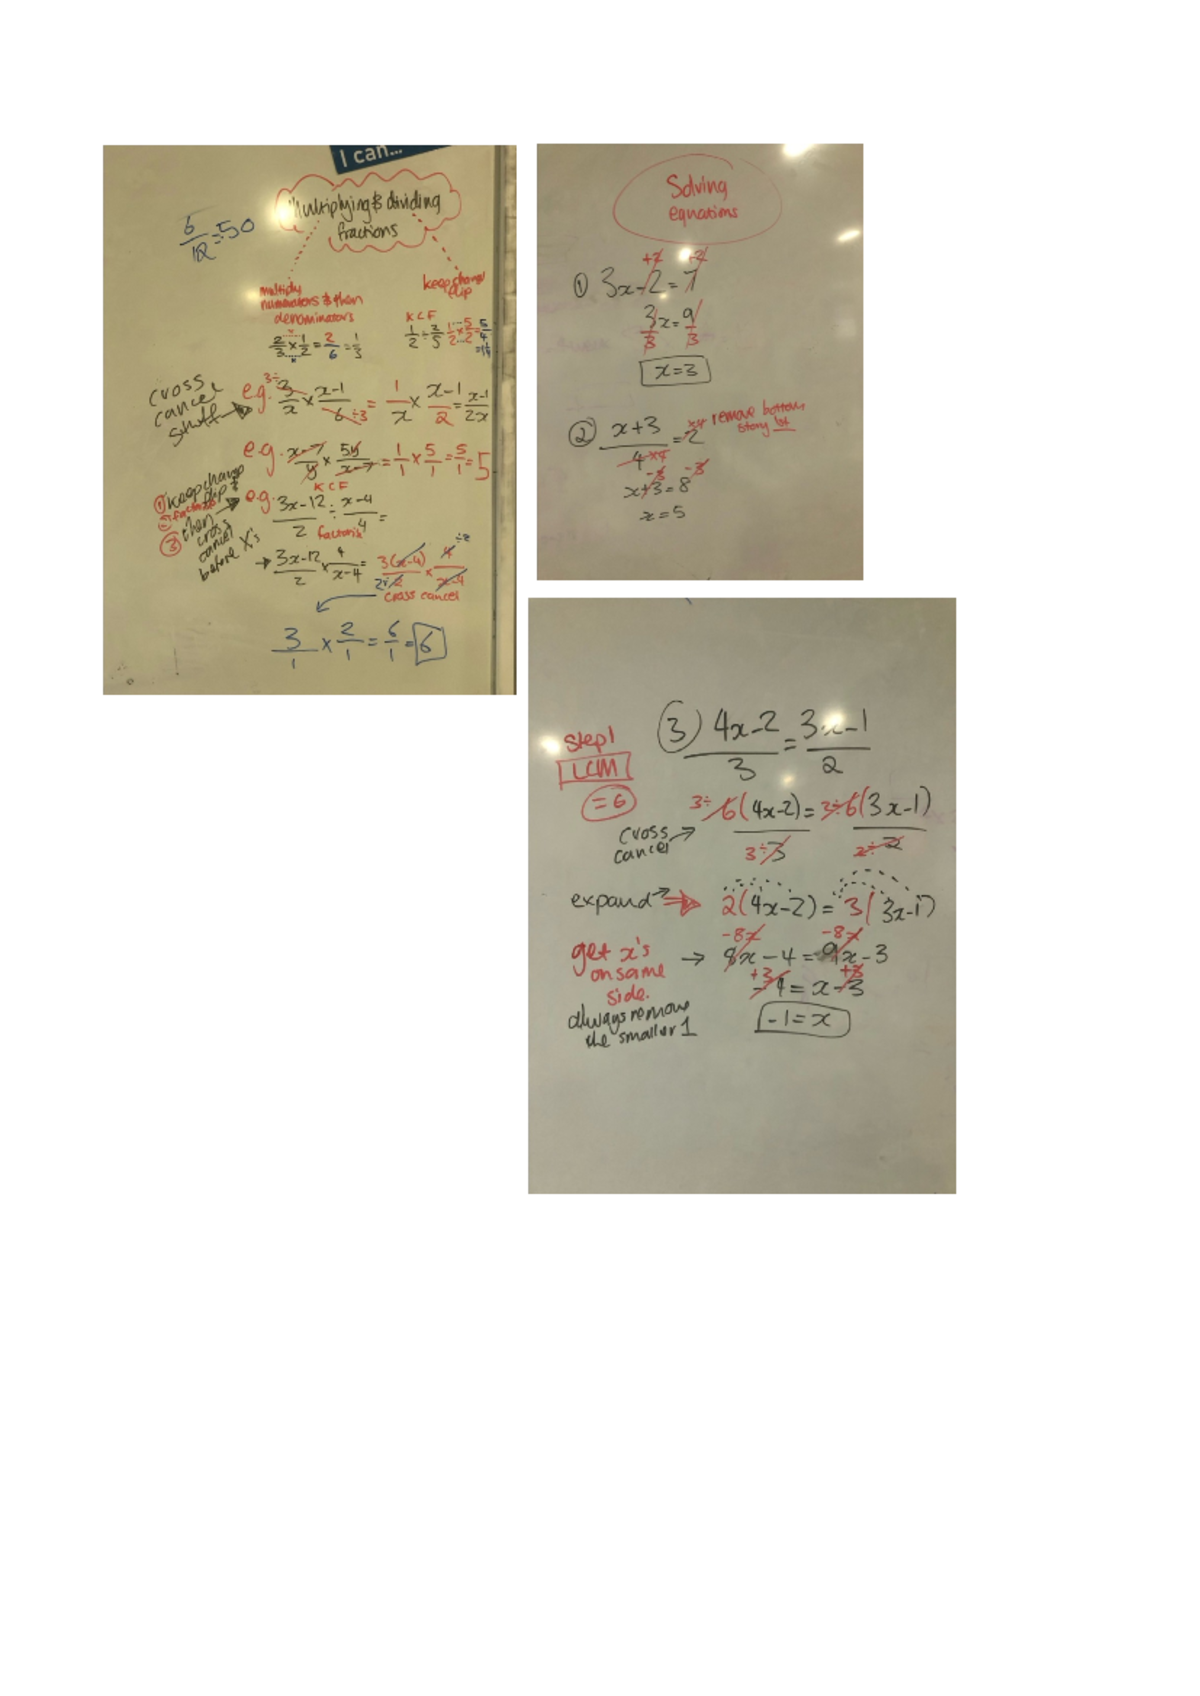 I can...
Multiplying & dividing
fractions
6/12 = 50
multiply
numerators & then
denominators
2/3 × 1/2 = 2/6 = 1/3
keep change
flip
K C F
1/2 ÷ 2/5 1/2 × 5/2 = 5/4
= 1 1/4
cross
cancel
stuff
e.g. 3/x × x-1/6 = 1/x × x-1/2 = x-1/2x
3÷
÷3
e.g. x-7/y × 5y/x-7 = 1/1 × 5/1 = 5/1 = 5
① keep change
flip &
② factorise
③ then
cross
cancel
before x's
K C F
e.g. 3x-12/2 ÷ x-4/4 =
factoris
3x-12/2 × 4/x-4 = 3(x-4)/2 × 4/x-4
÷2
cross cancel
3/1 × 2/1 = 6/1 = 6
Solving
equations
+2 +2
① 3x-2=7
3x/3=9/3
x=3
② x+3/4 = 2
×4 ×4
remove bottom
story 1st
-3 -3
x+3=8
x=5
step 1
LCM
=6
③ 4x-2/3 = 3x-1/2
cross
cancel
3÷ 6(4x-2)/3 = 3÷ 6(3x-1)/2
3÷ 2÷
expand
2(4x-2) = 3(3x-1)
-8x -8x
get x's
on same
side.
8x-4=9x-3
+3 +3
-4=x-3
always remove
the smaller 1
-1=x